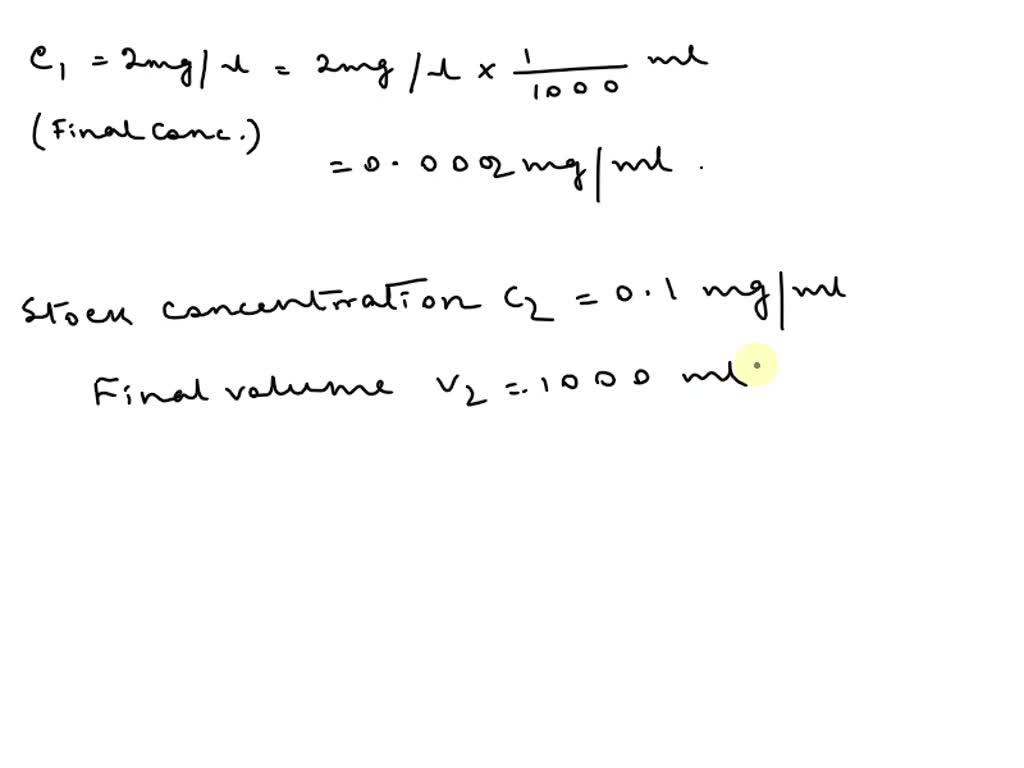 C₁ = 2mg/l = 2mg/l × 1/1000 ml
(Final conc.)
= 0.002 mg/ml.
Stock concentration C₂ = 0.1 mg/ml
Final volume V₂ = 1000 ml